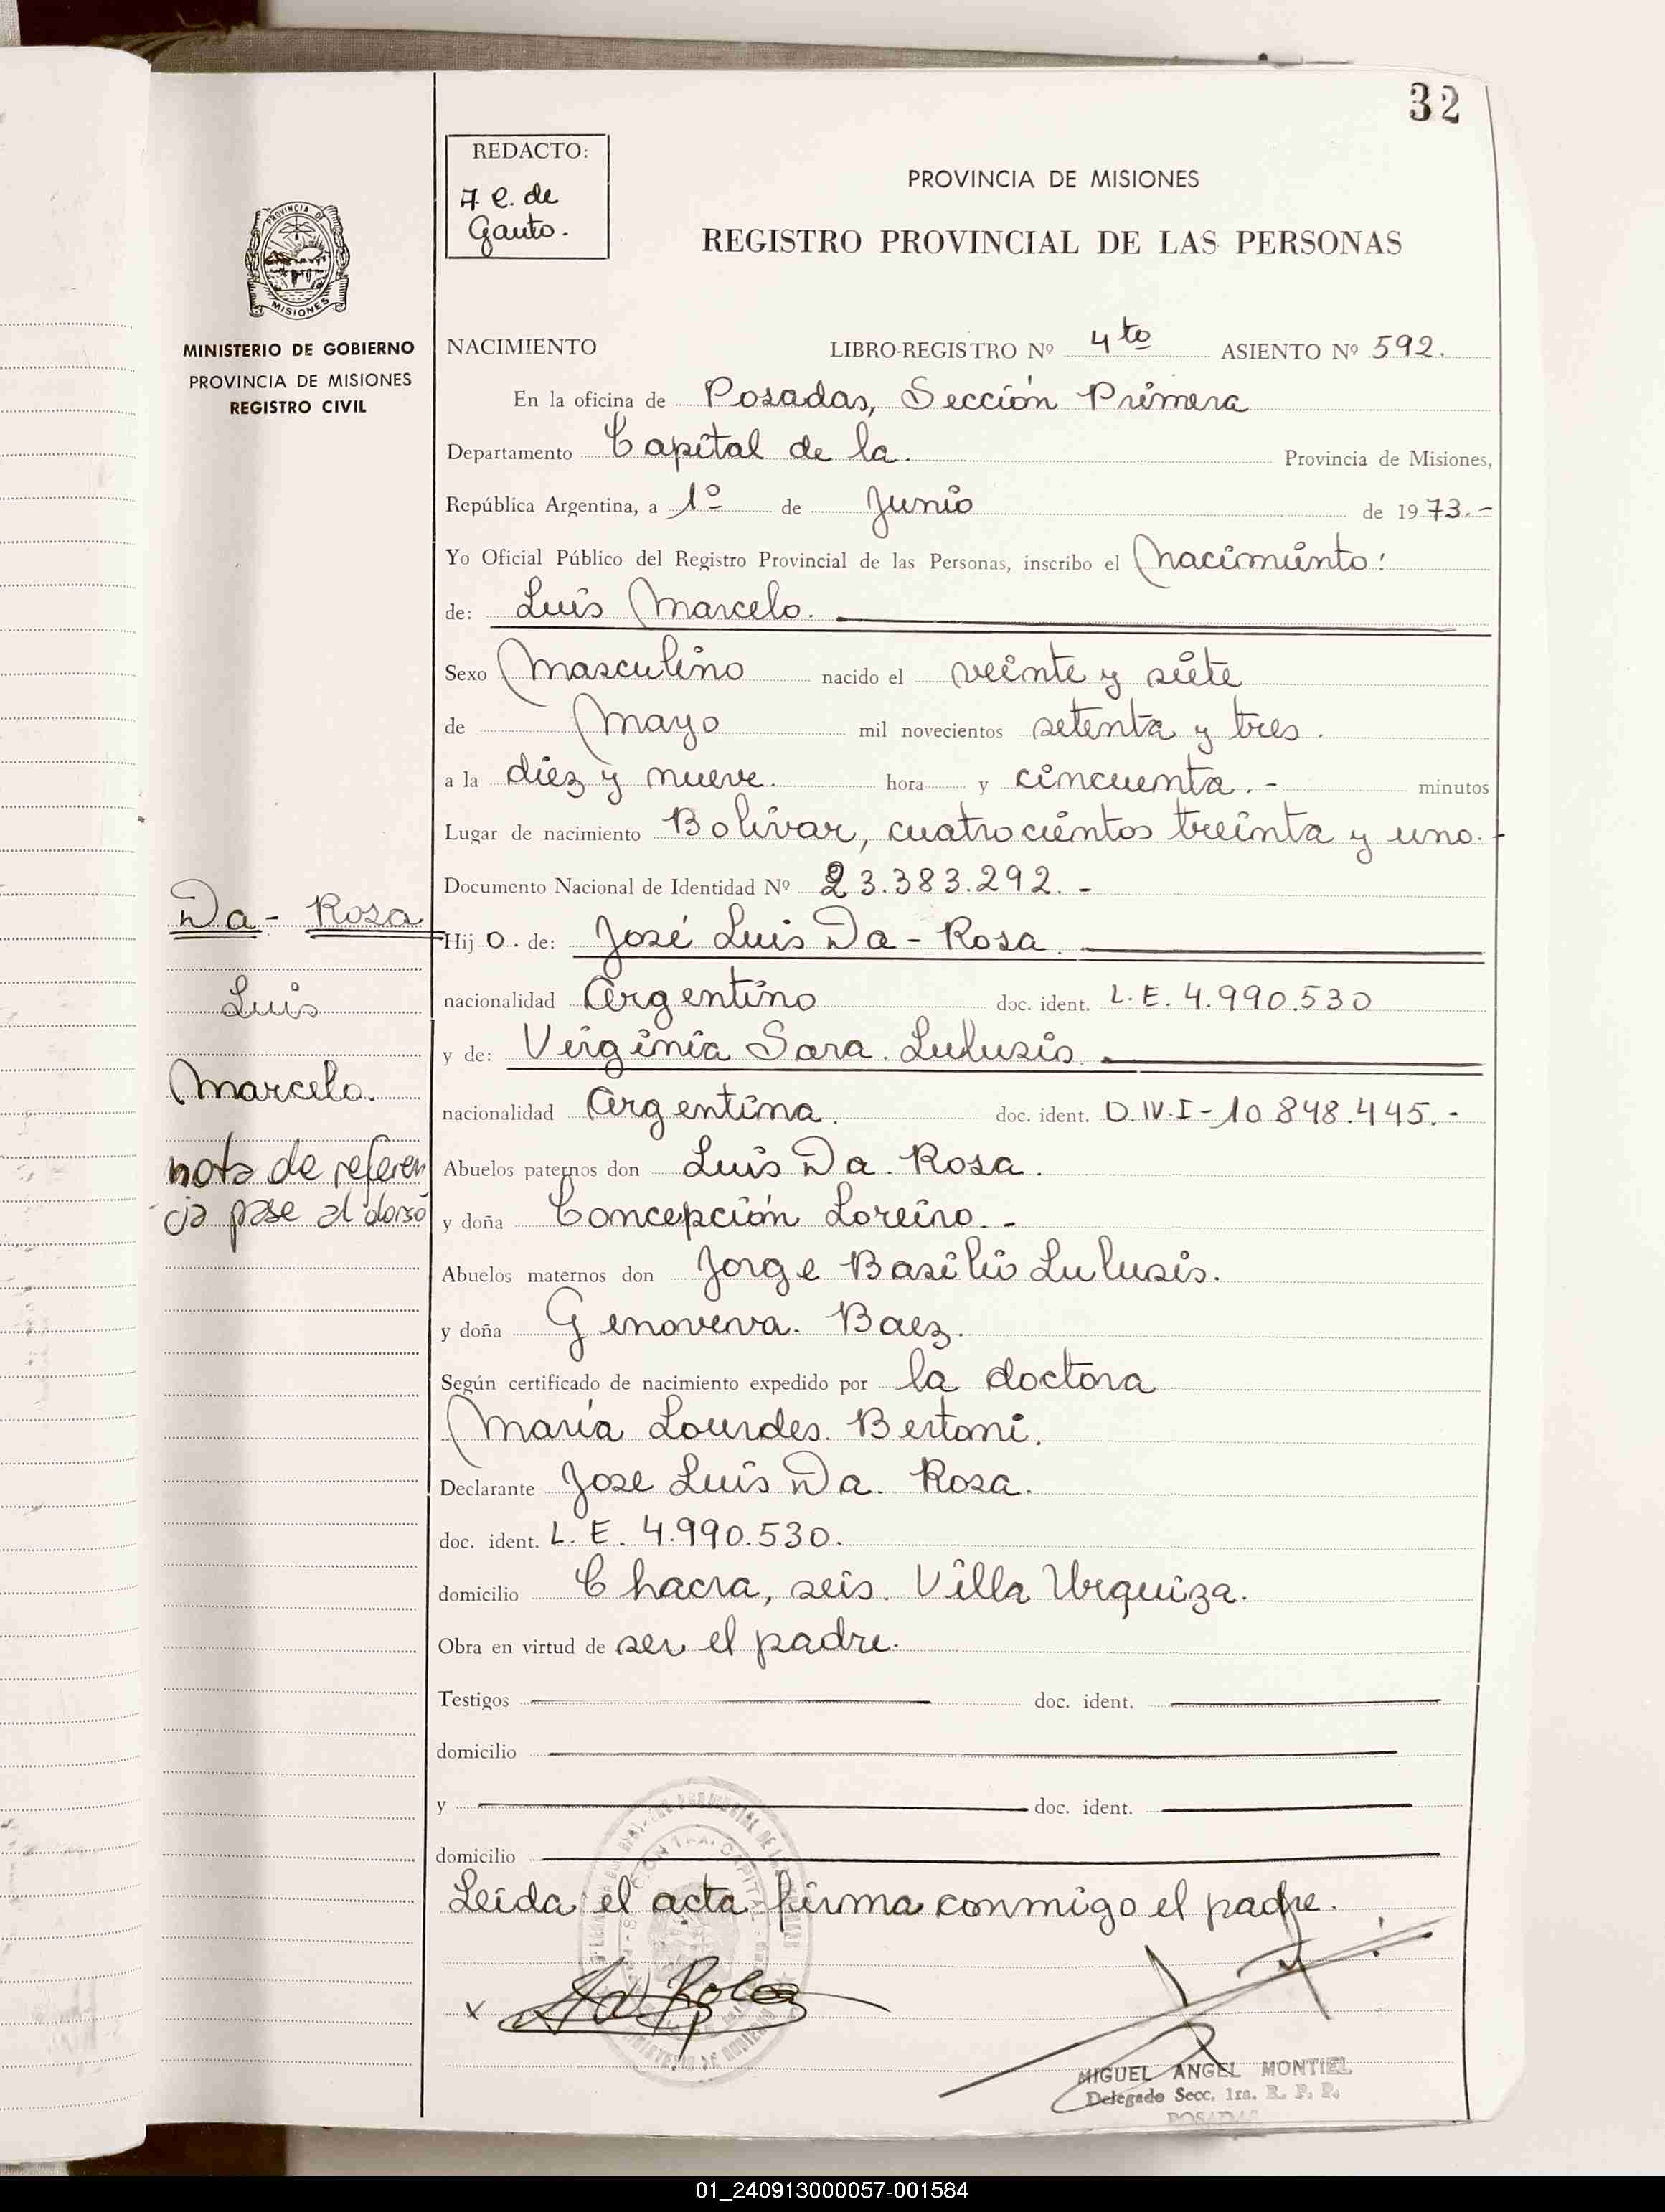 32
REDACTO:
A e. de
Gauto.
PROVINCIA DE MISIONES
REGISTRO PROVINCIAL DE LAS PERSONAS
PROVINCIA DE
MISIONES
MINISTERIO DE GOBIERNO
PROVINCIA DE MISIONES
REGISTRO CIVIL
NACIMIENTO LIBRO-REGISTRO Nº 4to ASIENTO Nº 592.
En la oficina de Posadas, Sección Primera
Departamento Capital de la. Provincia de Misiones,
República Argentina, a 1º de Junio de 1973.-
Yo Oficial Público del Registro Provincial de las Personas, inscribo el Nacimiento:
de: Luis Marcelo.
Sexo Masculino nacido el veinte y siete
de Mayo mil novecientos setenta y tres.
a la diez y nueve. hora y cincuenta.- minutos
Lugar de nacimiento Bolívar, cuatrocientos treinta y uno.-
Documento Nacional de Identidad Nº 23.383.292.-
Da-Rosa
Hijo. de: José Luis Da-Rosa
Luis
nacionalidad Argentino doc. ident. L.E. 4.990.530
y de: Virginia Sara. Lulusis
Marcelo.
nacionalidad Argentina. doc. ident. D.N.I-10 848.445.-
nota de referen
cia pase al dorso
Abuelos paternos don Luis Da. Rosa.
y doña Concepción Loreiro.-
Abuelos maternos don Jorge Basilio Lulusis.
y doña Genoveva. Baez.
Según certificado de nacimiento expedido por la doctora
María Lourdes. Bertoni.
Declarante Jose Luis Da. Rosa.
doc. ident. L. E. 4.990.530.
domicilio Chacra, seis. Villa Urquiza.
Obra en virtud de ser el padre.
Testigos doc. ident.
domicilio
y doc. ident.
domicilio
Leida el acta firma conmigo el padre.
x
MIGUEL ANGEL MONTIEL
Delegado Secc. 1ra. R. P. P.
POSADAS
01_240913000057-001584